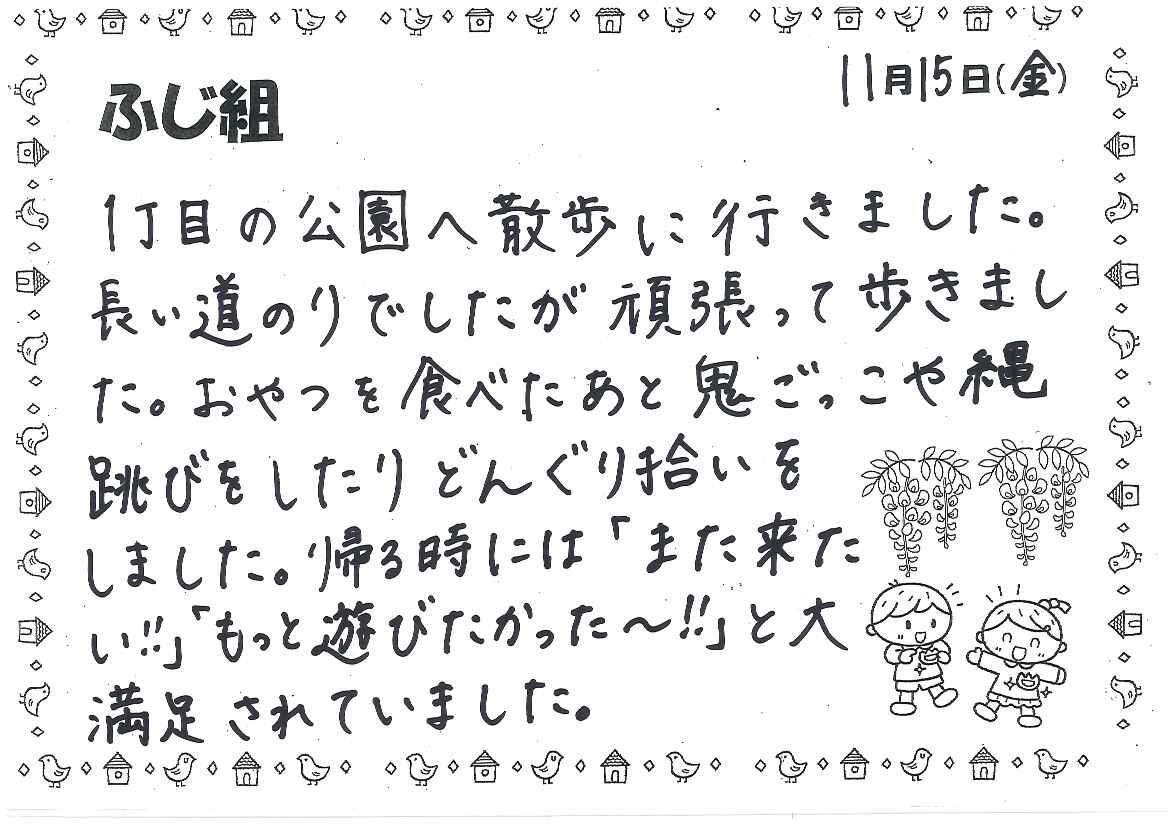 11月15日(金)
ふじ組
1丁目の公園へ散歩に行きました。
長い道のりでしたが頑張って歩きまし
た。おやつを食べたあと鬼ごっこや縄
跳びをしたりどんぐり拾いを
しました。帰る時には「また来た
い!!」「もっと遊びたかった〜!!」と大
満足されていました。